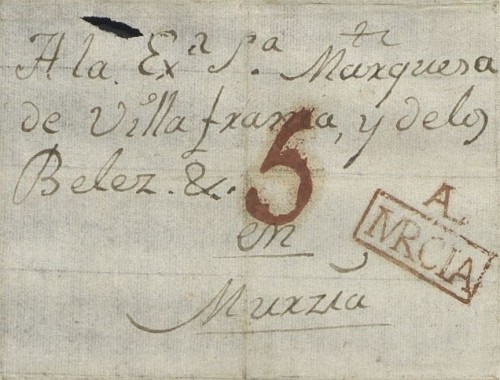 A la Ex.ª S.ª Marquesa
de Villafranca, y delos
Belez. &.
5
en
Murzia
A.
MRCIA